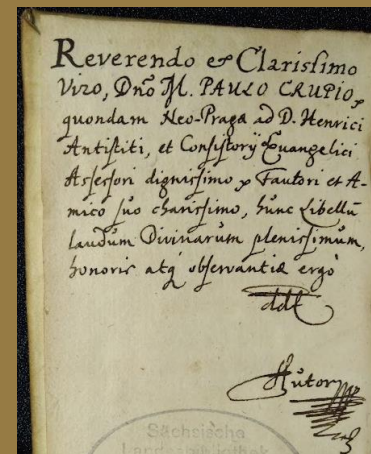 Reverendo & Clarissimo
Viro, Dnō M. PAULO CRUPIO,
quondam Neo-Pragæ ad D. Henrici
Antistiti, et Consistorÿ Euangelici
Assessori dignissimo, Fautori et A-
mico suo charissimo, hunc Libellū
laudum Divinarum plenissimum,
honoris atq́ observantiæ ergò
ddt
Autor
Sächsische